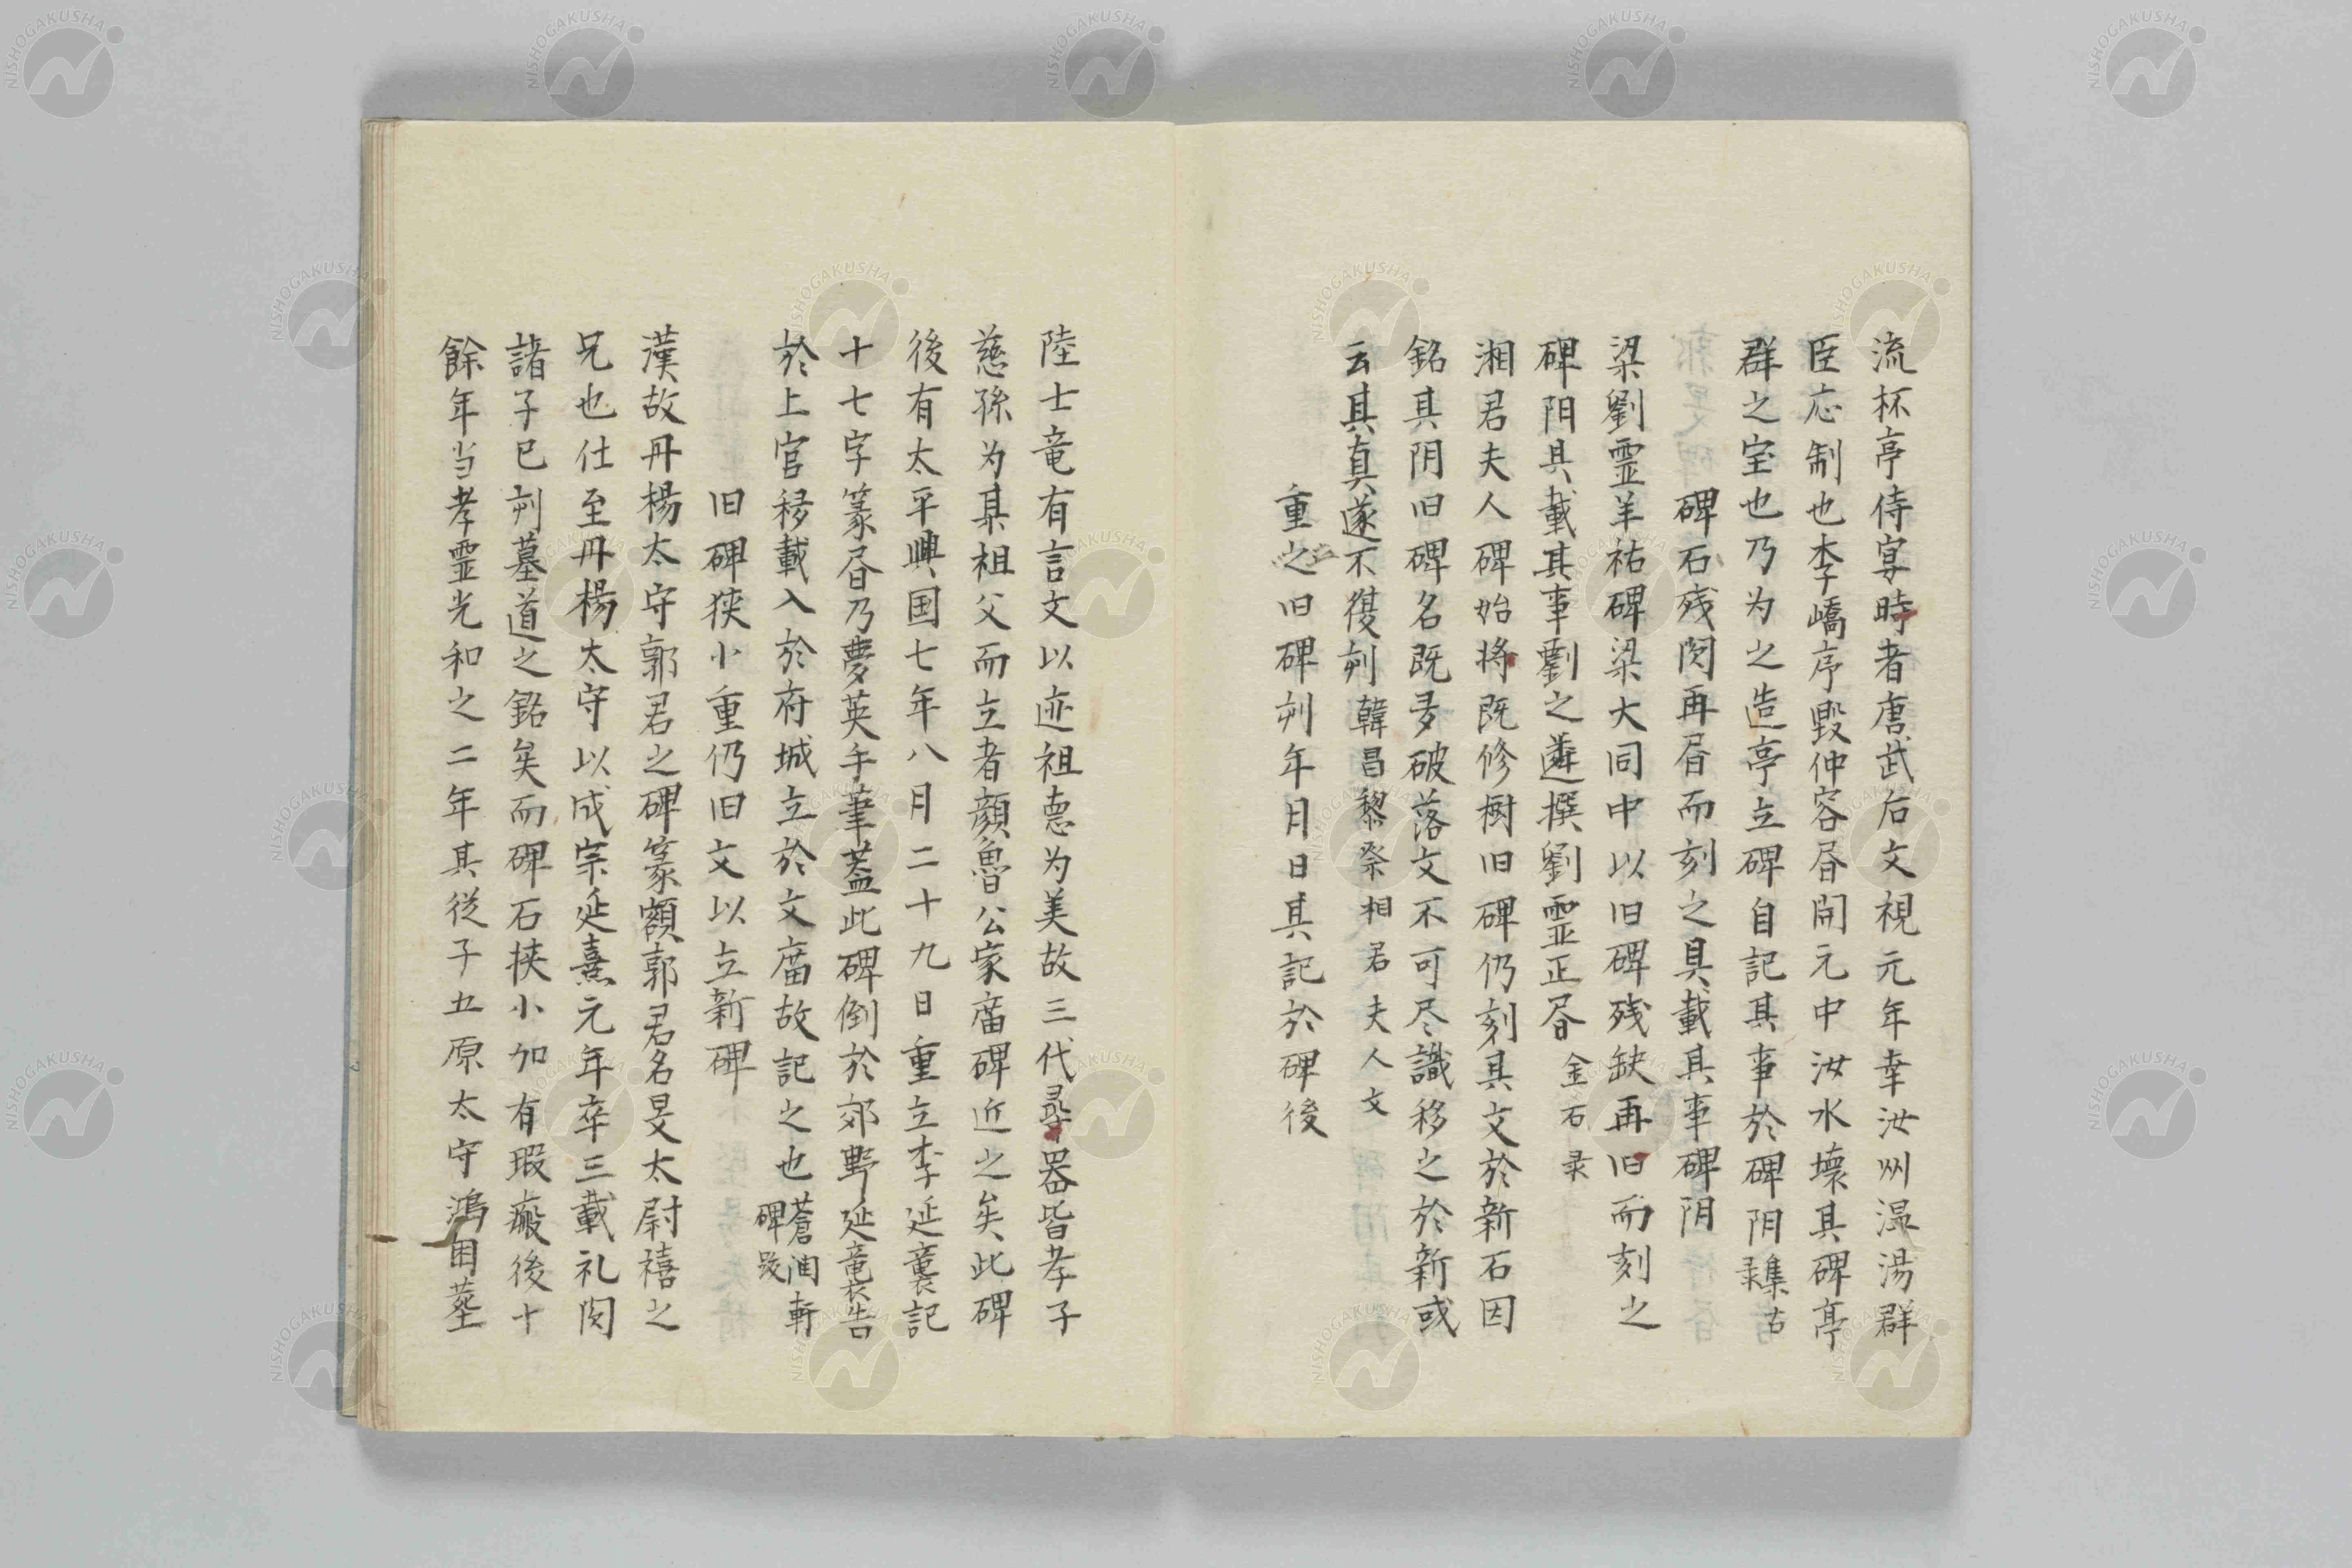 流杯亭侍宴時者唐武后文視元年幸汝州温湯群
臣応制也李嶠序毀仲容昏開元中汝水壊其碑亭
群之室也乃为之造亭立碑自記其事於碑阴集古录
碑石残閡再昏而刻之具載其事碑阴
梁劉霊羊祐碑梁大同中以旧碑残缺再旧而刻之
碑阳具載其事劉之遴撰劉霊正昏 金石录
湘君夫人碑始将既修樹旧碑仍刻其文於新石因
銘其阴旧碑名既多破落文不可尽識移之於新或
云其真遂不復刋 韓昌黎祭相君夫人文
重之旧碑刋年月日其記於碑後
陸士竜有言文以迹祖悳为美故三代尋器皆孝子
慈孫为某祖父而立者顔魯公家廟碑近之矣此碑
後有太平興国七年八月二十九日重立李延襲記
十七字篆昏乃夢英手筆蓋此碑倒於郊野延襲告
於上官移載入於府城立於文廟故記之也 蒼潤軒碑跋
旧碑狭小重仍旧文以立新碑
漢故丹楊太守郭君之碑篆額郭君名旻太尉禧之
兄也仕至丹楊太守以成宗延熹元年卒三載礼閡
諸子已刋墓道之銘矣而碑石狭小加有瑕瘢後十
餘年当孝霊光和之二年其従子五原太守鴻困塋